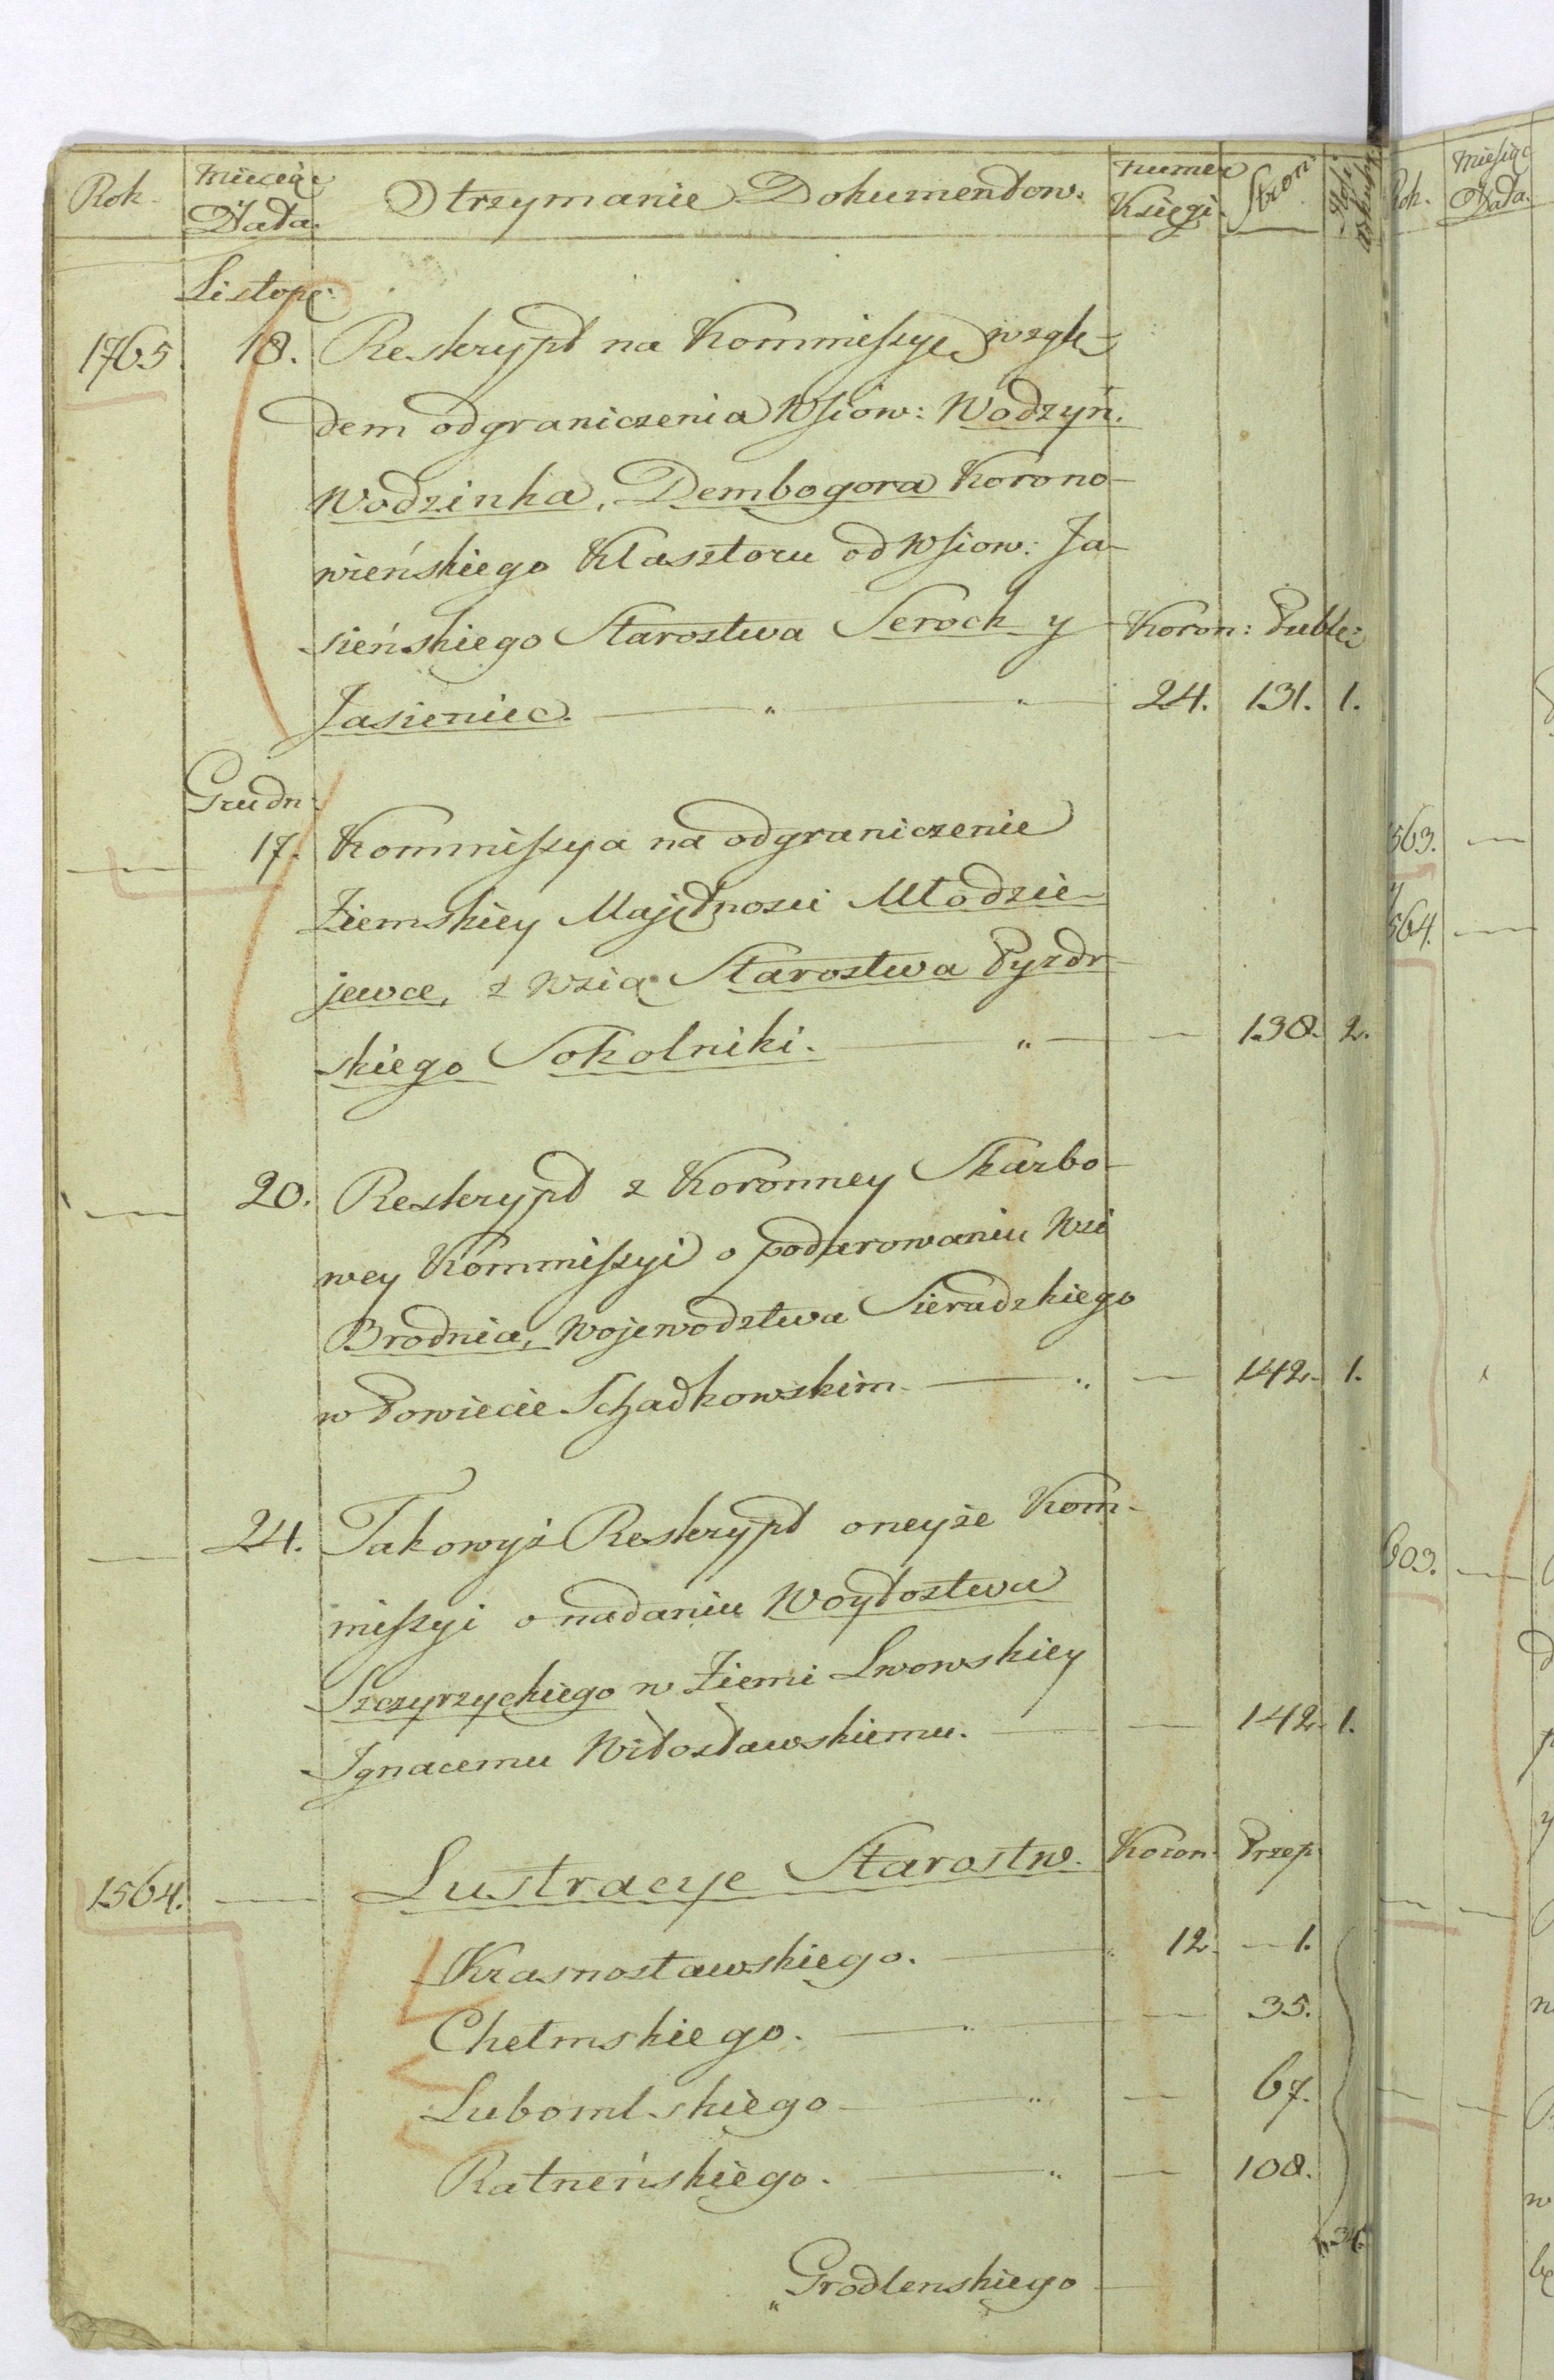 Rok. Miesiąc Data. Otrzymanie Dokumentow. Numer Księgi. Stron.
Listop:
1765 18. Reskrypt na Kommiſsyę wzglę-
dem odgraniczenia Wsiow: Wodzyń.
Wodzinka, Dembogora Korono-
wieńskiego Klasztoru od Wsiow: Ja-
sieńskiego Starostwa Serock y Koron: Publ:
Jasieniec. — " — " 24. 131. 1.
Grudn:
— 17. Kommiſsya na odgraniczenie
Ziemskiey Majętnosci Młodzie-
jewce, z Wsią Starostwa Pyzdr-
skiego Sokolniki. — " — — 138. 2.
— 20. Reskrypt z Koronney Skarbo-
wey Kommiſsyi o podarowaniu Wsi
Brodnia, Wojewodztwa Sieradzkiego
w Powiecie Schadkowskim. — " — 142. 1.
— 24. Takowyż Reskrypt oneyże Kom-
miſsyi o nadaniu Woytostwa
Szczyrzyckiego w Ziemi Lwowskiey
Ignacemu Witosławskiemu. — — 142. 1.
1564. — Lustracye Starostw. Koron: Przep:
Krasnostawskiego. — " 12. — 1.
Chełmskiego. — " — — 35.
Lubomlskiego — " — 67.
Ratneńskiego. — " — 108.
n. 34.
" Grodlenskiego —
Rok. Miesiąc Data.
563. —
564. —
603. —